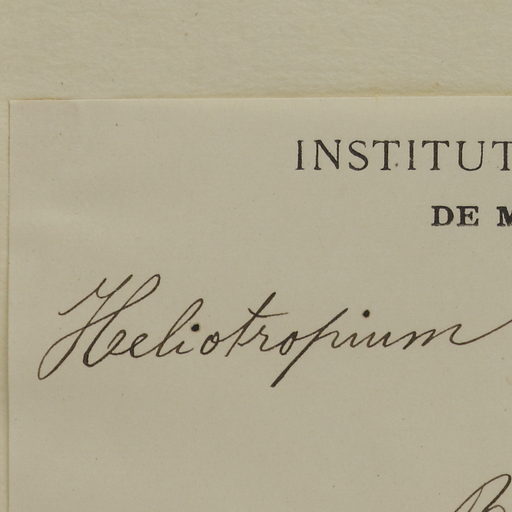 INSTITUT
DE M
Heliotropium